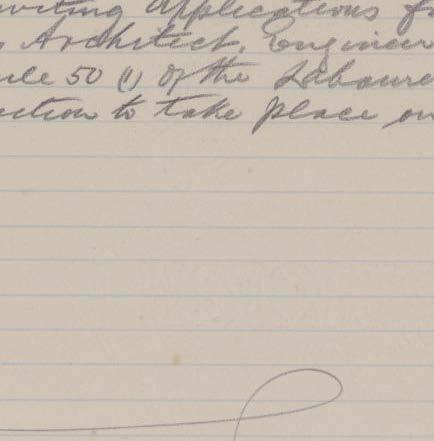 inviting applications f
Architect, Engineer
ule 50 (1) of the Laboure
ction to take place on